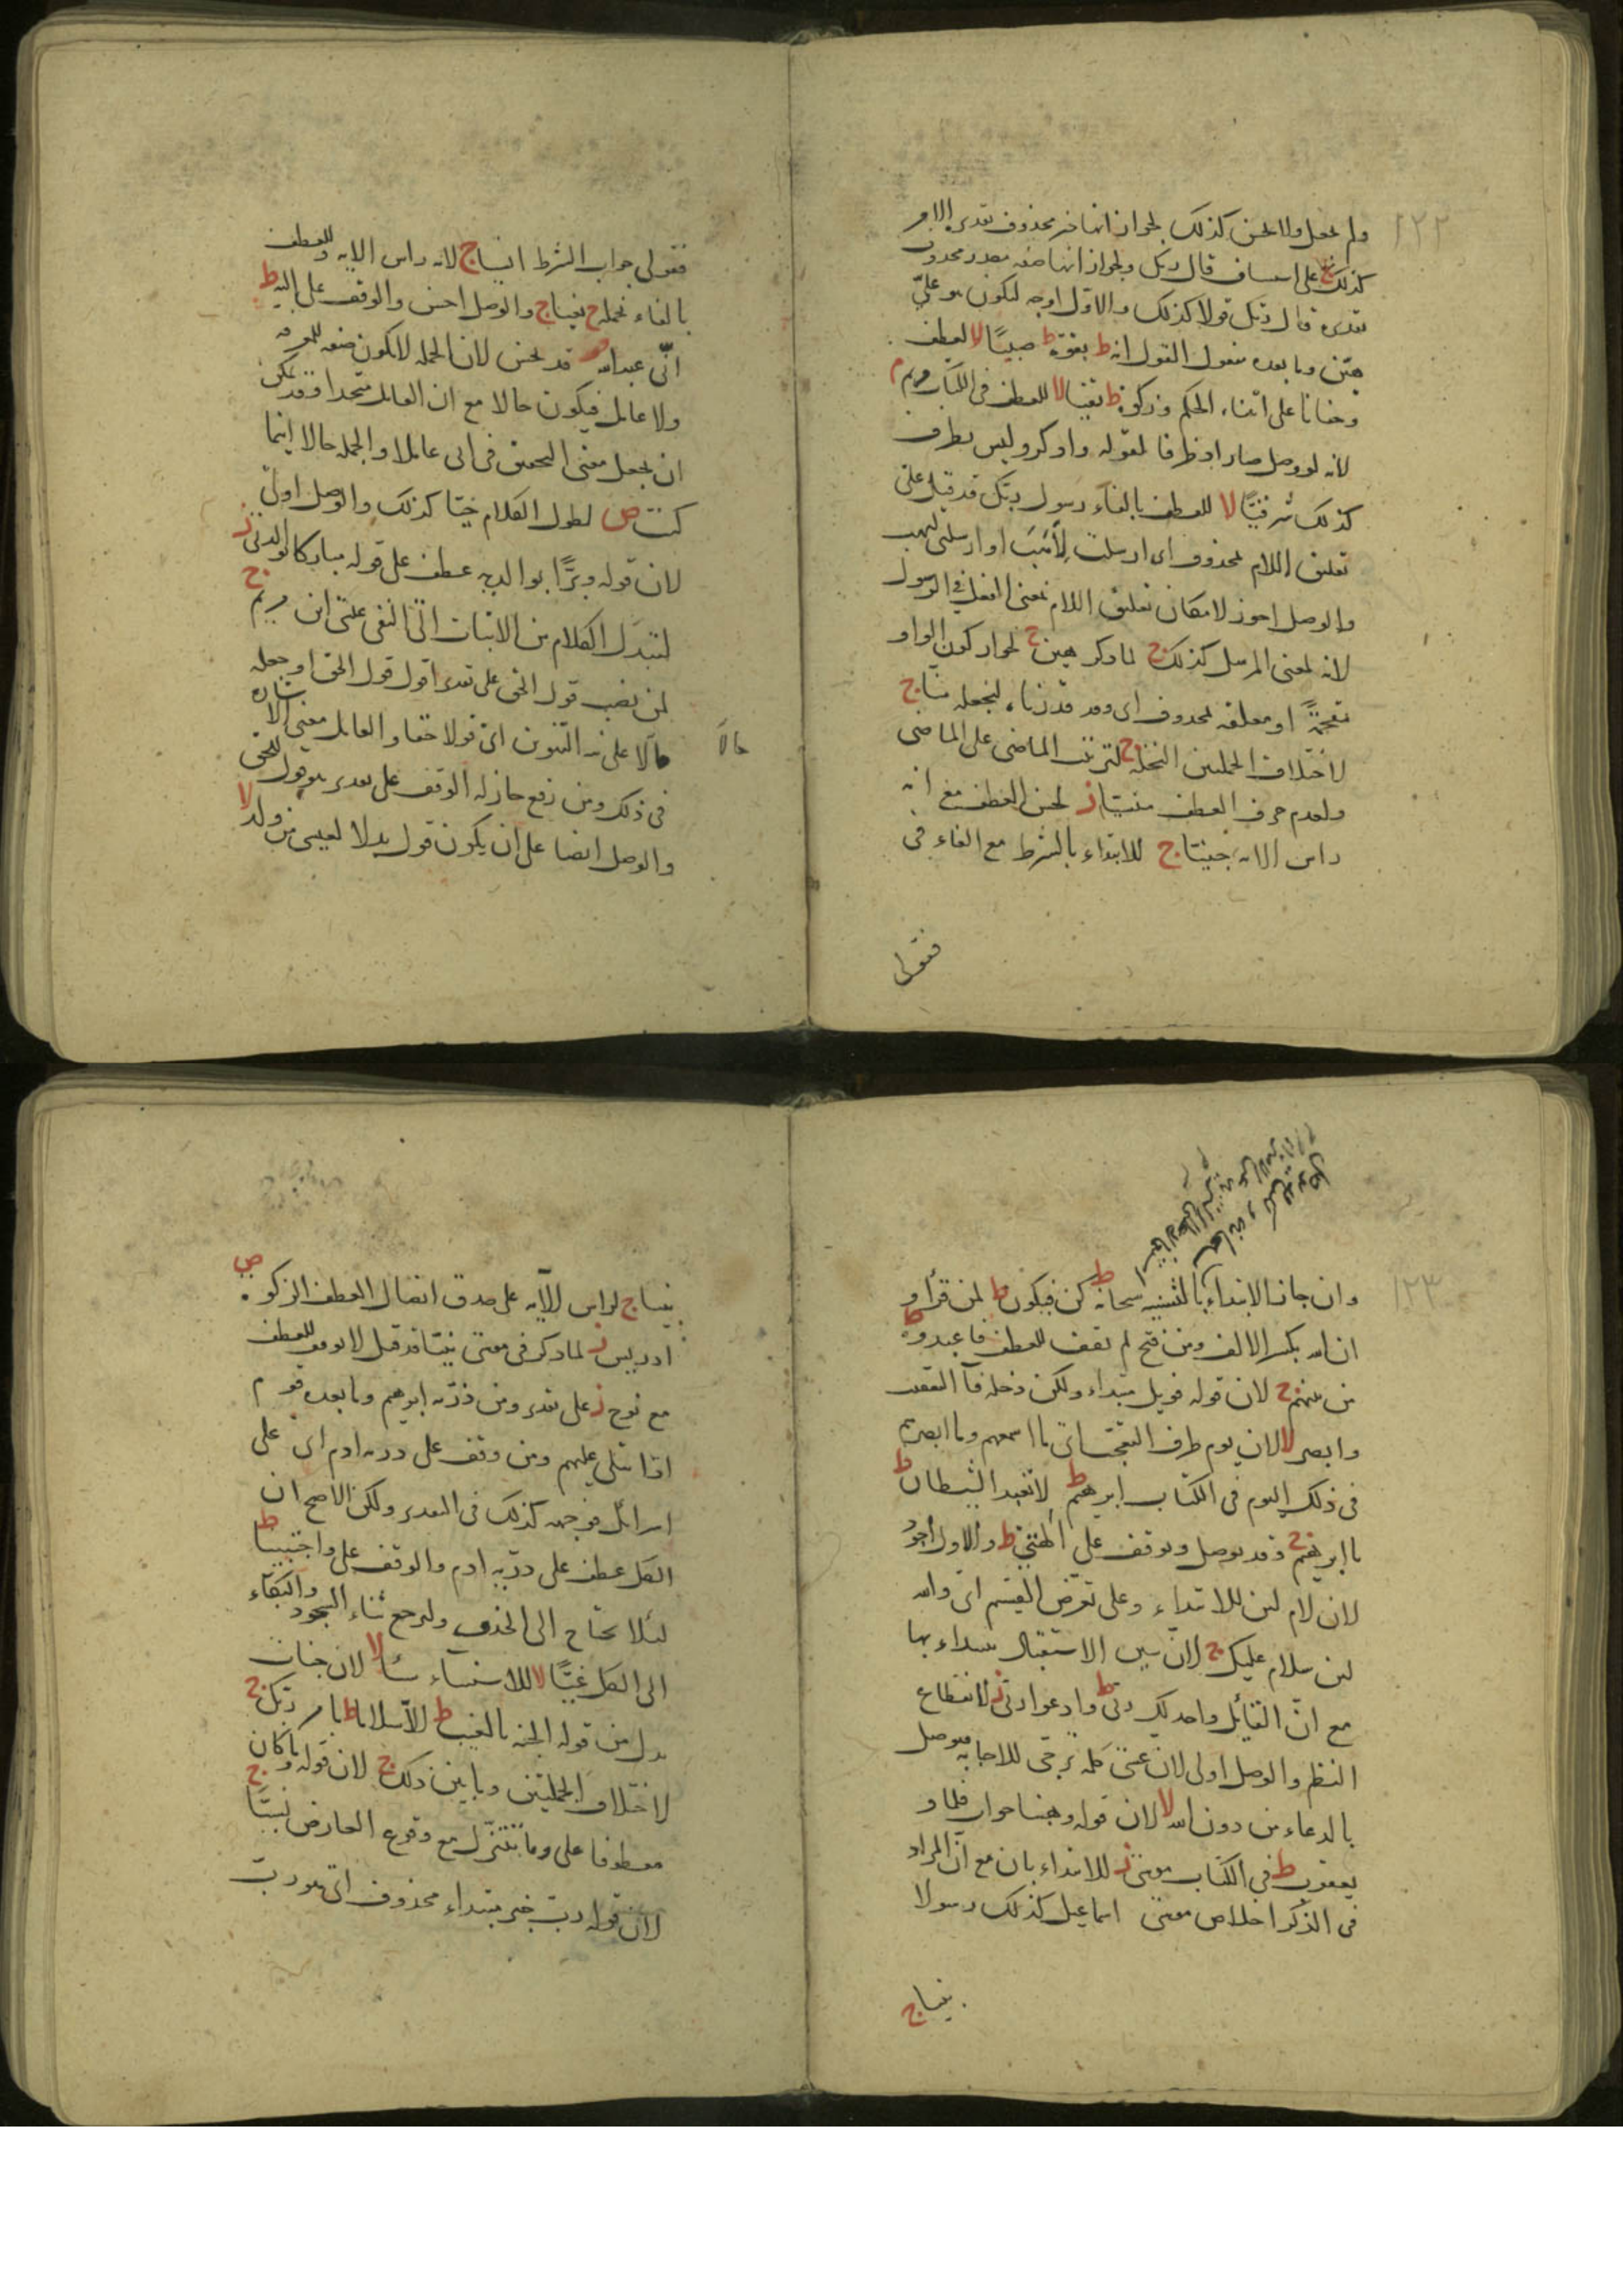 ١٢٢
ولم يجعل ولا يحسن كذلك لجواز انها خبر محذوف تقديره الامر
كذلك ج على استيناف قال ربك ولجواز انها صفة مصدر محذوف
تقديره قال ربك قولا كذلك والاول اوجه ليكون هو عليّ
هيّن وما بعده مفعول القول انه ط بقوة ط صبيّا لا لعطف
وحنانا على اتيناه الحكم وزكوة ط تقيا لا للعطف فى الكتاب مريم م
لانه لو وصل صار اذ ظرفا لقوله واذكر وليس بظرف
كذلك شرقيّا لا للعطف بالفاء رسول ربك قد قيل على
تعلق اللام بمحذوف اى ارسلت لِأَهَبَ او ارسلنى ليهب
والوصل اجوز لامكان تعليق اللام بمعنى الفعل فى الرسول
لانه بمعنى المرسل كذلك ج لما ذكر هين ج لجواز كون الواو
مقحمةً او معلقة بمحذوف اى وقد قدرناه لنجعله منا ج
لاختلاف الجملتين النخلة ج لترتب الماضى على الماضى
ولعدم حرف العطف منسيّا ز لحسن العطف مع انه
راس الاية جنيّا ج للابتداء بالشرط مع الفاء فى
فقولى
فقولى جواب الشرط انسيا ج لانه راس الاية وللعطف
بالفاء تحمله ج بغيا ج والوصل احسن والوقف على اليه ط
انّى عبد الله قد يحسن لان الجملة لا تكون صفة للمعرفة
ولا عامل فيكون حالا مع ان القائل متحد وقد يمكن
ان يجعل معنى التحقيق فى انى عاملا والجملة حالا اينما
كنت ص لطول الكلام حيّا كذلك والوصل اولى
لان قوله وبَرًّا بوالدتى عطف على قوله مباركا بوالدتى ز
لتبدّل الكلام من الاثبات الى النفى عيسى ابن مريم ج
لمن نصب قول الحق على تقدير اقول قول الحق او جعله
حالا على نية التنوين اى قولا حقا والعامل معنى الاشارة
حالا
فى ذلك ومن رفع جاز له الوقف على تقدير هو قول الحق
والوصل ايضا على ان يكون قول بدلا لعيسى من ولد لا
١٢٣
وان جاز الابتداء بالتنبيه سبحانه ط كن فيكون ط لمن قرأ و
ان الله بكسر الالف ومن فتح لم يقف للعطف فاعبدوه ط
من بينهم ج لان قوله فويل مبتداء ولكن دخله فاء التعقيب
وابصر لا لان يوم ظرف التعجب اى ما اسمعهم وما ابصرهم
فى ذلك اليوم فى الكتاب ابرهيم ط لا تعبد الشيطان ط
يا ابرهيم ج وقد يوصل ويوقف على الهتى ط والاول اجود
لان لام لئن للابتداء وعلى تعرّض القسم اى والله
لئن سلام عليك ج لان سين الاستقبال يبتداء بها
مع انّ القائل واحد لك ربّى ط وادعوا ربى ز لانقطاع
النظم والوصل اولى لان عسى كلمة ترجّى للاجابة فيوصل
بالدعاء من دون الله لا لان قوله وهبنا جواب فلما و
يعقوب ط فى الكتاب موسى ز للابتداء بان مع انّ المراد
فى الذكر اخلاص موسى اسماعيل كذلك رسولا
نبيا ج
نبيا ج لراس الآية على صدق اتصال العطف الزكوة ص
ادريس ز لما ذكر فى موسى نبيّا قد قيل لا يوقف للعطف
مع نوح ز على تقدير ومن ذريّة ابرهيم وما بعده قوم
اذا تتلى عليهم ومن وقف على ذرية ادم اى على
اسرائل فوجهه كذلك فى التقدير ولكن الاصح ان
الكل عطف على ذرّية ادم والوقف على واجتبينا ط
لئلا يحتاج الى الحذف وليرجع ثناء السجود والبكاء
الى الكل غيّا لا للاستثناء شيئا لا لان جنات
بدل من قوله الجنة بالغيب ط الّا سلاما ط بامر ربك ج
لاختلاف الجملتين وما بين ذلك ج لان قوله وما كان
معطوفا على وما نتنزّل مع وقوع العارض نسيّا ج
لان قوله رب خبر مبتداء محذوف اى هو رب